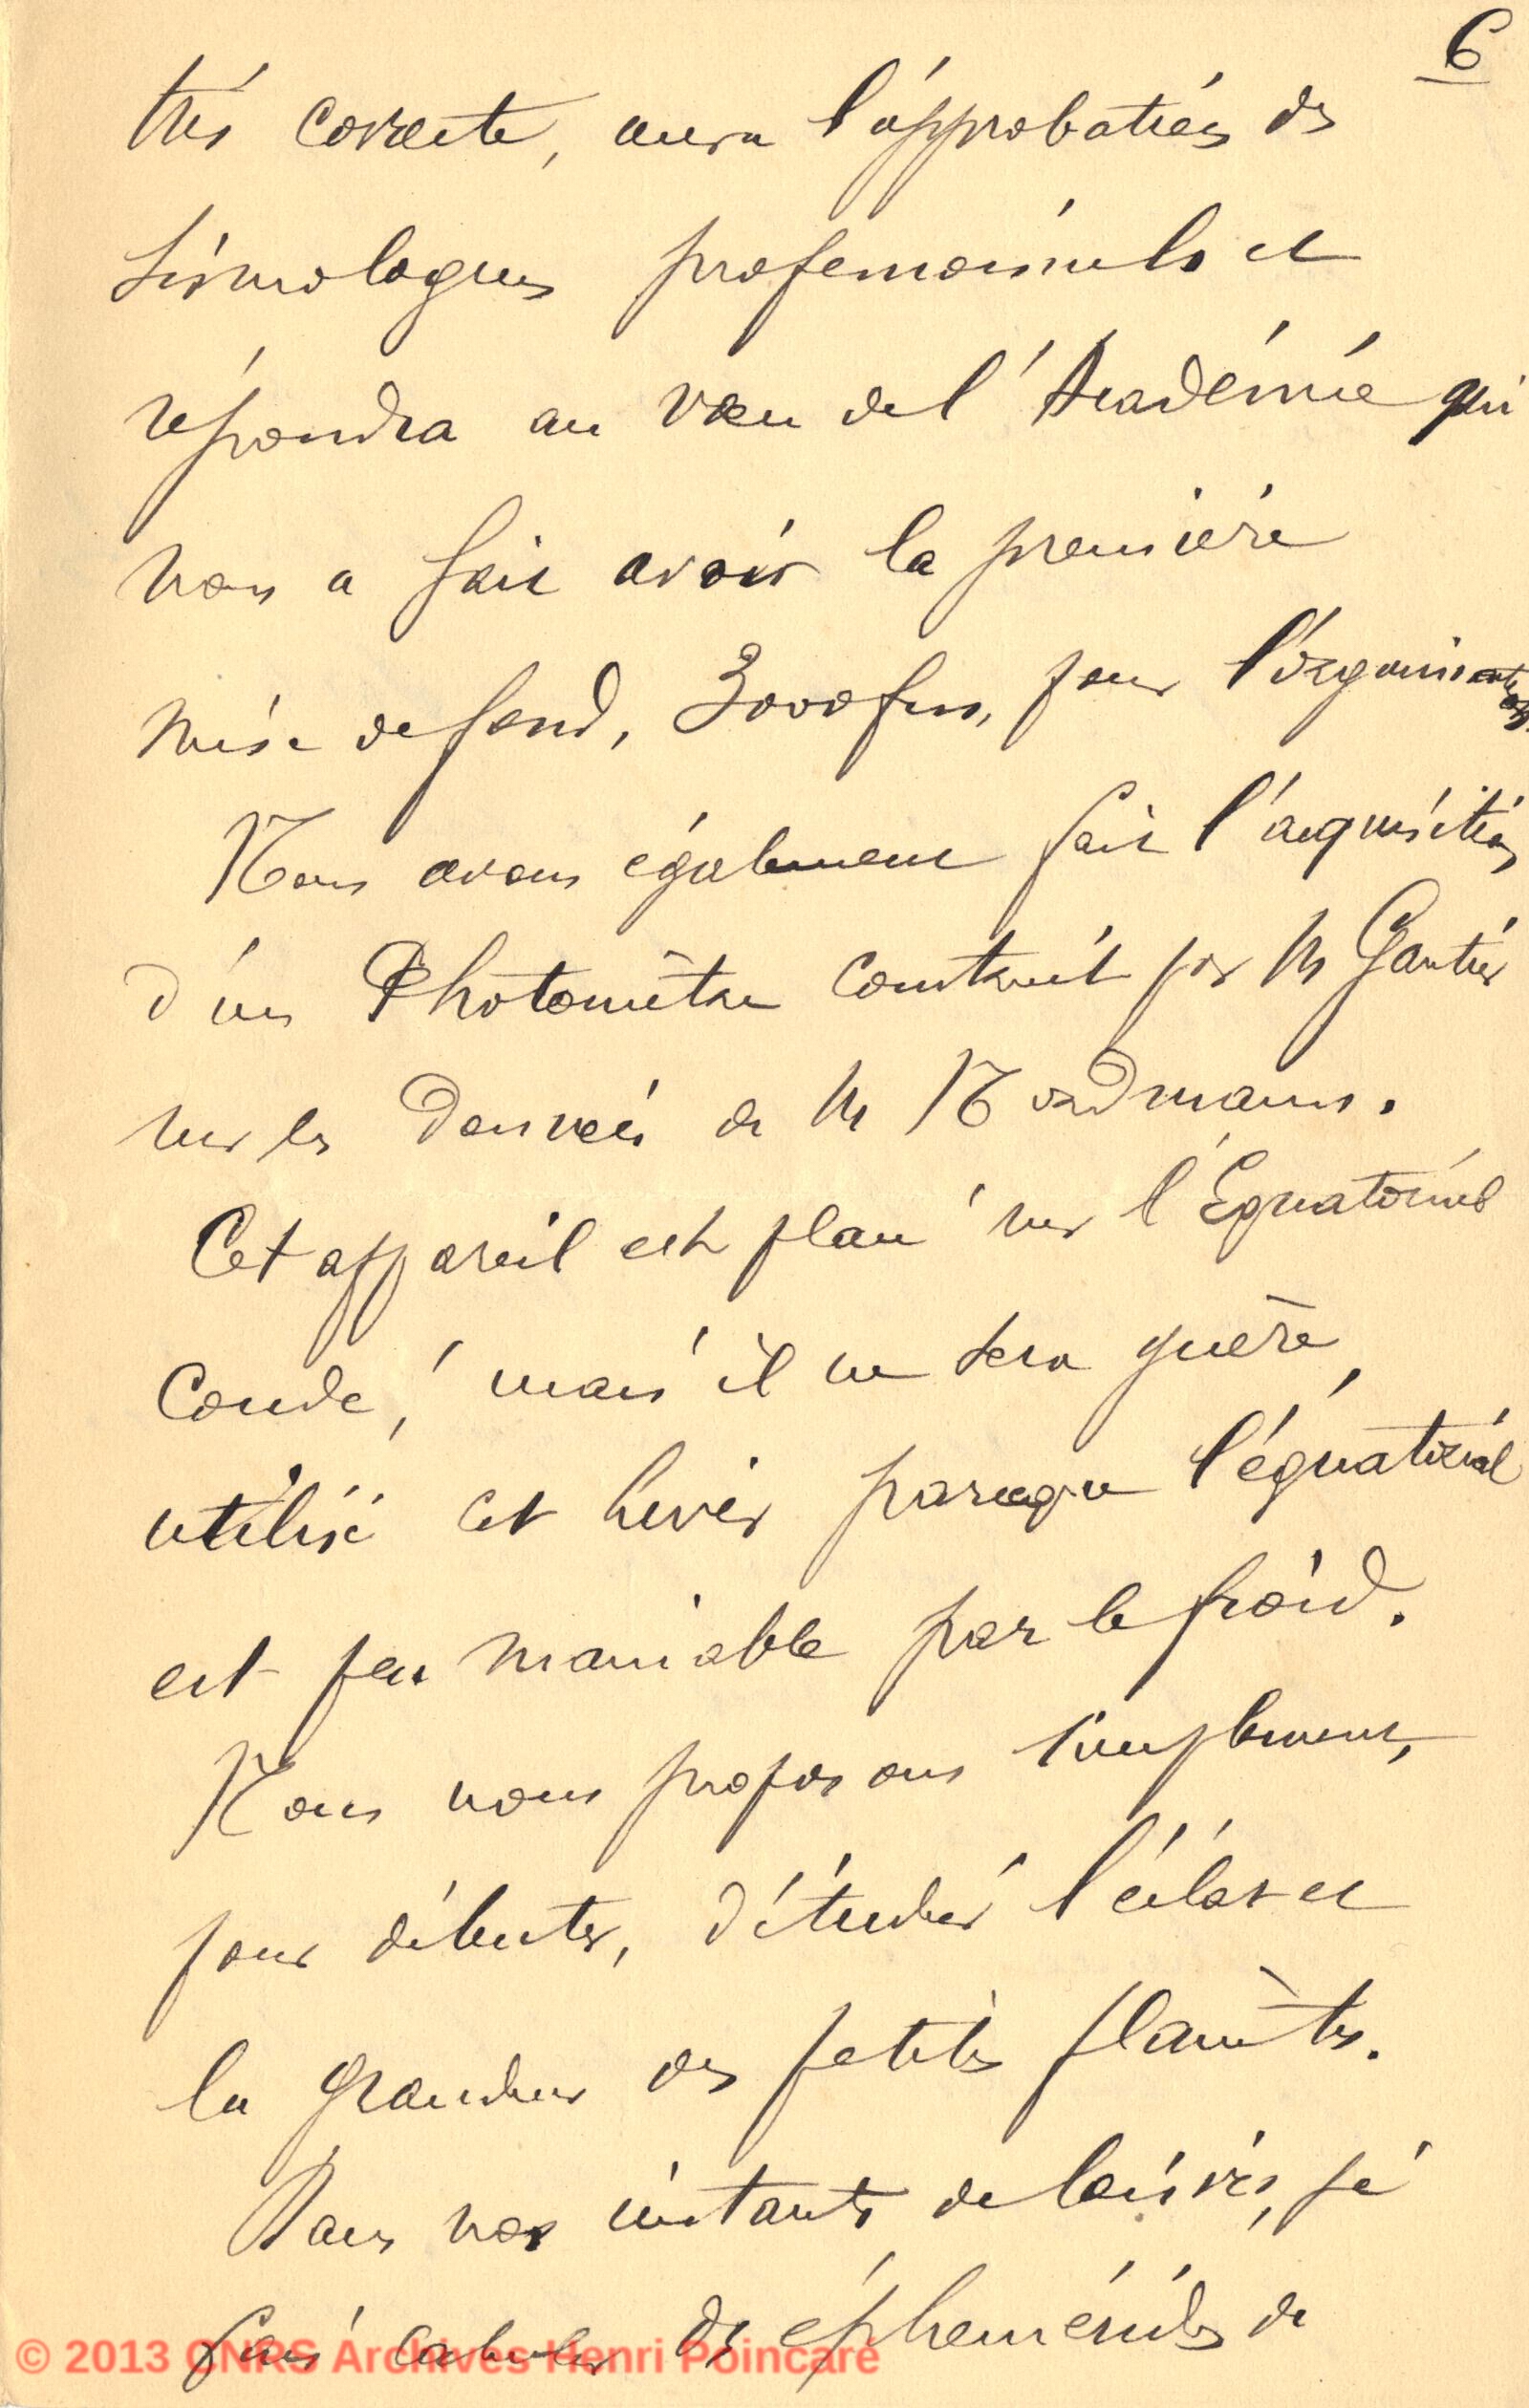 6
très correcte, aura l'approbation des
sismologues professionnels et
répondra au vœu de l'Académie qui
nous a fait avoir la première
mise de fond, 3000 frs, pour l'organisation
Nous avons également fait l'acquisition
d'un Photomètre construit par M Gautier
sur les données de M Nordmann.
Cet appareil est placé sur l'Équatorial
Coudé, mais il ne sera guère,
utilisé cet hiver parceque l'équatorial
est peu maniable par le froid.
Nous nous proposons simplement,
pour débuter, d'étudier l'éclat et
la grandeur des petites planètes.
Dans nos instants de loisirs, je
fais calculer des éphémérides de
© 2013 CNRS Archives Henri Poincaré